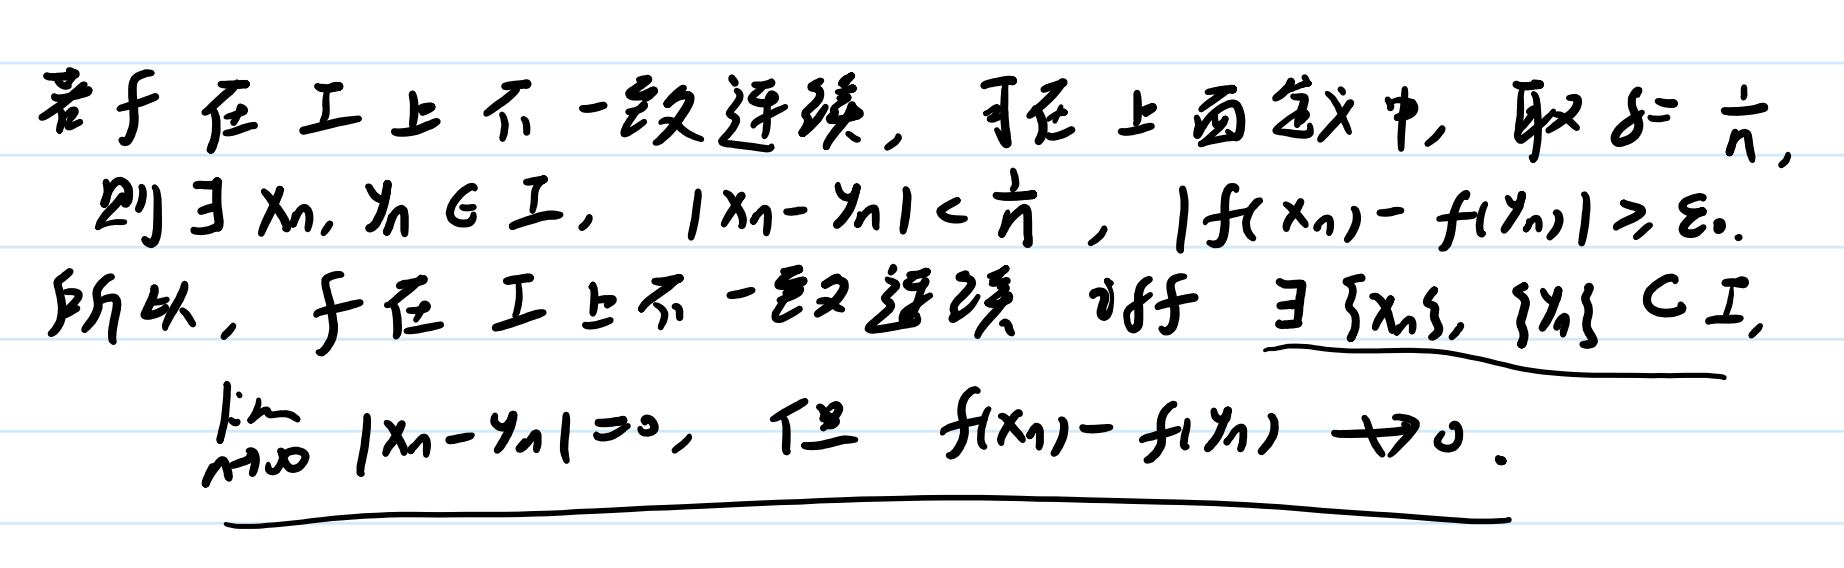 若 f 在 I 上不一致连续, 可在上面定义中, 取 δ = 1/n,
则 ∃ xₙ, yₙ ∈ I, |xₙ - yₙ| < 1/n, |f(xₙ) - f(yₙ)| ≥ ε₀.
所以, f 在 I 上不一致连续 iff ∃ {xₙ}, {yₙ} ⊂ I,
lim n→∞ |xₙ - yₙ| = 0, 但 f(xₙ) - f(yₙ) ↛ 0.